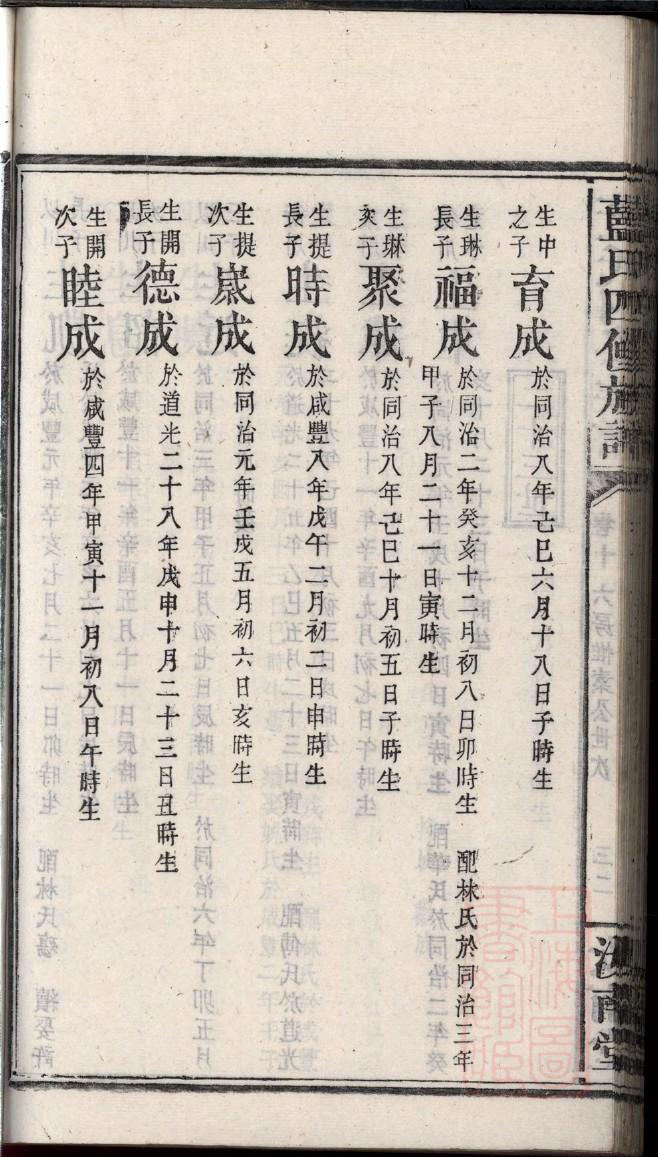 藍氏四修族譜
卷十 六房惟素公世次 三二
汝南堂
生中之子 育成 於同治八年己巳六月十八日子時生
生琳長子 福成 於同治二年癸亥十二月初八日卯時生 配林氏於同治三年
甲子八月二十一日寅時生
生琳次子 聚成 於同治八年己巳十月初五日子時生
生提長子 時成 於咸豐八年戊午二月初二日申時生
生提次子 嵗成 於同治元年壬戌五月初六日亥時生
生開長子 德成 於道光二十八年戊申十月二十三日丑時生
生開次子 睦成 於咸豐四年甲寅十二月初八日午時生
上海圖書館藏